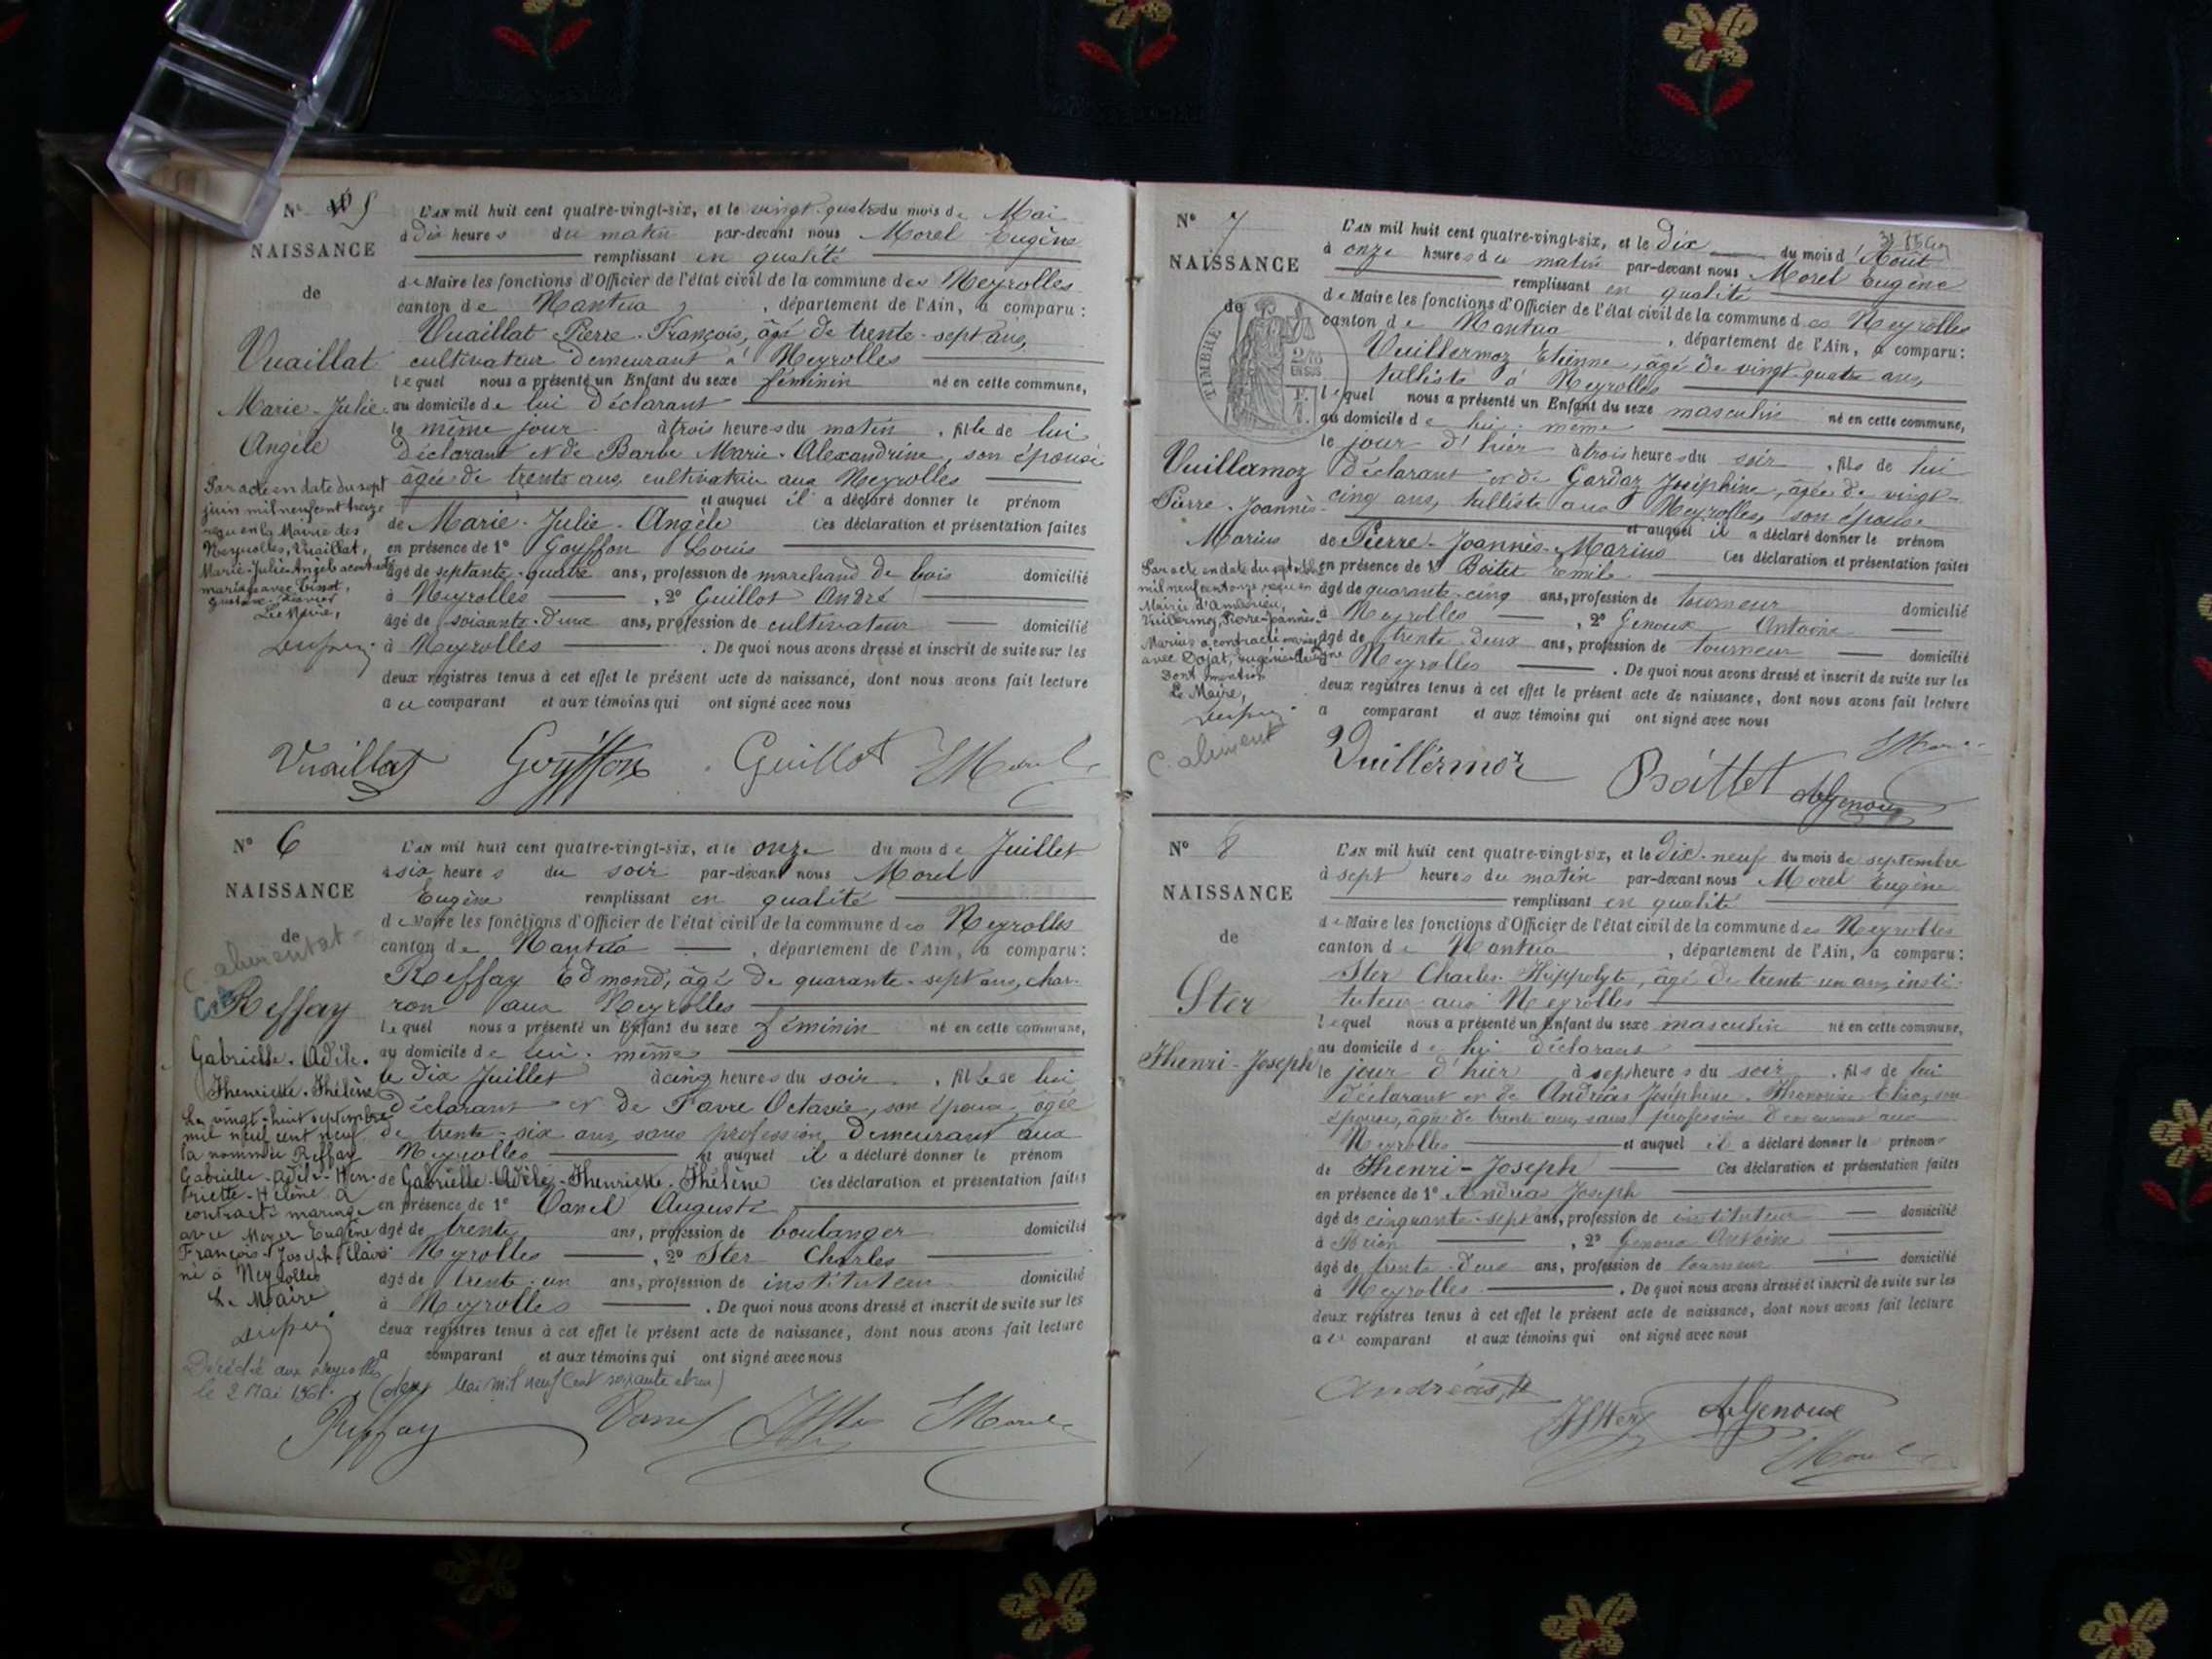 Nº 5
NAISSANCE
de
Vuaillat
Marie-Julie
Angèle
Par acte en date du sept
juin mil neuf cent treize
reçu en la Mairie des
Neyrolles, Vuaillat,
Marie-Julie-Angèle a contracté
mariage avec
Le Maire,
L'AN mil huit cent quatre-vingt-six, et le vingt-quatre du mois de Mai
à dix heures du matin par-devant nous Morel Eugène
remplissant en qualité
de Maire les fonctions d'Officier de l'état civil de la commune des Neyrolles
canton de Nantua, département de l'Ain, a comparu:
Vuaillat Pierre-François, âgé de trente-sept ans,
cultivateur demeurant à Neyrolles
lequel nous a présenté un Enfant du sexe féminin né en cette commune,
au domicile de lui déclarant
le même jour à trois heures du matin, fille de lui
déclarant et de Barbe Marie-Alexandrine, son épouse
âgée de trente ans, cultivatrice aux Neyrolles
et auquel il a déclaré donner le prénom
de Marie-Julie-Angèle Ces déclaration et présentation faites
en présence de 1º Goyffon Louis
âgé de septante-quatre ans, profession de marchand de bois domicilié
à Neyrolles, 2º Guillot André
âgé de soixante-deux ans, profession de cultivateur domicilié
à Neyrolles. De quoi nous avons dressé et inscrit de suite sur les
deux registres tenus à cet effet le présent acte de naissance, dont nous avons fait lecture
au comparant et aux témoins qui ont signé avec nous
Vuaillat Goyffon Guillot Morel
Nº 6
NAISSANCE
de
C. alimentat
Reffay
Gabrielle-Adèle-
Hhenriette-Hhélène
Le vingt-huit septembre
mil neuf cent neuf
la nommée Reffay
Gabrielle-Adèle-Hen-
riette-Hélène a
contracté mariage
avec Moyer Eugène
François-Joseph Claire
né à Neyrolles
Le Maire
Décédée aux Neyrolles
le 2 Mai 1961. (deux Mai mil neuf cent soixante et un)
L'AN mil huit cent quatre-vingt-six, et le onze du mois de Juillet
à six heures du soir par-devant nous Morel
Eugène remplissant en qualité
de Maire les fonctions d'Officier de l'état civil de la commune des Neyrolles
canton de Nantua, département de l'Ain, a comparu:
Reffay Edmond, âgé de quarante-sept ans, char-
ron aux Neyrolles
lequel nous a présenté un Enfant du sexe féminin né en cette commune,
au domicile de lui-même
le dix Juillet à cinq heures du soir, fille de lui
déclarant et de Favre Octavie, son épouse, âgée
de trente-six ans, sans profession, demeurant aux
Neyrolles et auquel il a déclaré donner le prénom
de Gabrielle-Adèle-Hhenriette-Hhélène Ces déclaration et présentation faites
en présence de 1º Vanel Auguste
âgé de trente ans, profession de boulanger domicilié
à Neyrolles, 2º Ster Charles
âgé de trente-un ans, profession de instituteur domicilié
à Neyrolles. De quoi nous avons dressé et inscrit de suite sur les
deux registres tenus à cet effet le présent acte de naissance, dont nous avons fait lecture
a comparant et aux témoins qui ont signé avec nous
Reffay Vanel Ster Morel
Nº 7
NAISSANCE
de
TIMBRE
Vuillermoz
Pierre-Joannès-
Marius
Par acte en date du
mil neuf cent onze reçu en
Mairie d'Ambérieu,
Vuillermoz, Pierre-Joannès-
Marius a contracté mariage
avec Dojat,
Dont mention
Le Maire,
C. aliment
L'AN mil huit cent quatre-vingt-six, et le dix du mois d'Août
à onze heures du matin par-devant nous Morel Eugène
remplissant en qualité
de Maire les fonctions d'Officier de l'état civil de la commune des Neyrolles
canton de Nantua, département de l'Ain, a comparu:
Vuillermoz Etienne, âgé de vingt-quatre ans,
tulliste à Neyrolles
lequel nous a présenté un Enfant du sexe masculin né en cette commune,
au domicile de lui-même
le jour d'hier à trois heures du soir, fils de lui
déclarant et de Gardaz Joséphine, âgée de vingt-
cinq ans, tulliste aux Neyrolles, son épouse
et auquel il a déclaré donner le prénom
de Pierre-Joannès-Marius Ces déclaration et présentation faites
en présence de 1º Boitet Emile
âgé de quarante-cinq ans, profession de tourneur domicilié
à Neyrolles, 2º Genoux Antoine
âgé de trente-deux ans, profession de tourneur domicilié
Neyrolles. De quoi nous avons dressé et inscrit de suite sur les
deux registres tenus à cet effet le présent acte de naissance, dont nous avons fait lecture
a comparant et aux témoins qui ont signé avec nous
Vuillermoz Boittet Genoux
Nº 8
NAISSANCE
de
Ster
Hhenri-Joseph
L'AN mil huit cent quatre-vingt-six, et le dix-neuf du mois de septembre
à sept heures du matin par-devant nous Morel Eugène
remplissant en qualité
de Maire les fonctions d'Officier de l'état civil de la commune des Neyrolles
canton de Nantua, département de l'Ain, a comparu:
Ster Charles-Hippolyte, âgé de trente-un ans, insti-
tuteur aux Neyrolles
lequel nous a présenté un Enfant du sexe masculin né en cette commune,
au domicile de lui déclarant
le jour d'hier à sept heures du soir, fils de lui
déclarant et de Andréas Joséphine son
épouse, âgée de trente ans, sans profession demeurant aux
Neyrolles et auquel il a déclaré donner le prénom
de Hhenri-Joseph Ces déclaration et présentation faites
en présence de 1º Andréas Joseph
âgé de cinquante-sept ans, profession de instituteur domicilié
à Brion, 2º Genoux Antoine
âgé de trente-deux ans, profession de tourneur domicilié
à Neyrolles. De quoi nous avons dressé et inscrit de suite sur les
deux registres tenus à cet effet le présent acte de naissance, dont nous avons fait lecture
au comparant et aux témoins qui ont signé avec nous
Andréas Ster Genoux
Morel